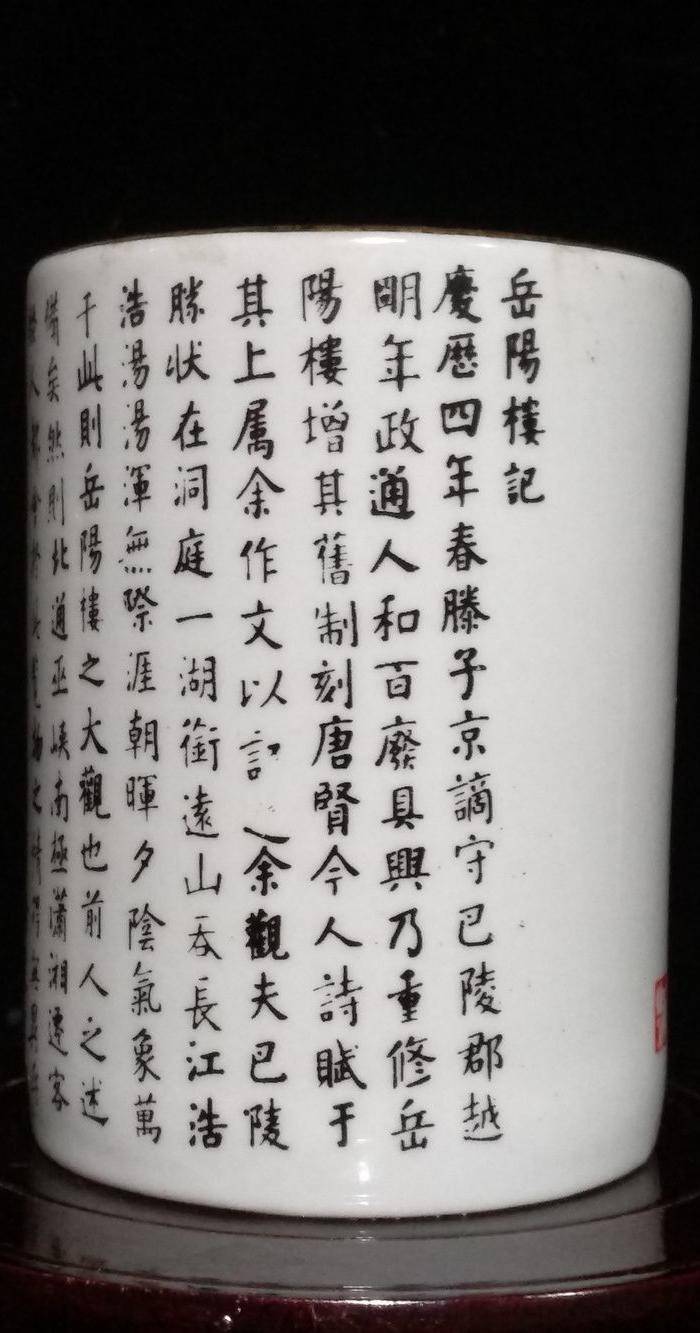 岳陽樓記
慶歷四年春滕子京謫守巴陵郡越
明年政通人和百廢具興乃重修岳
陽樓增其舊制刻唐賢今人詩賦于
其上屬余作文以記余觀夫巴陵
勝狀在洞庭一湖銜遠山吞長江浩
浩湯湯渾無際涯朝暉夕陰氣象萬
千此則岳陽樓之大觀也前人之述
備矣然則北通巫峽南極瀟湘遷客